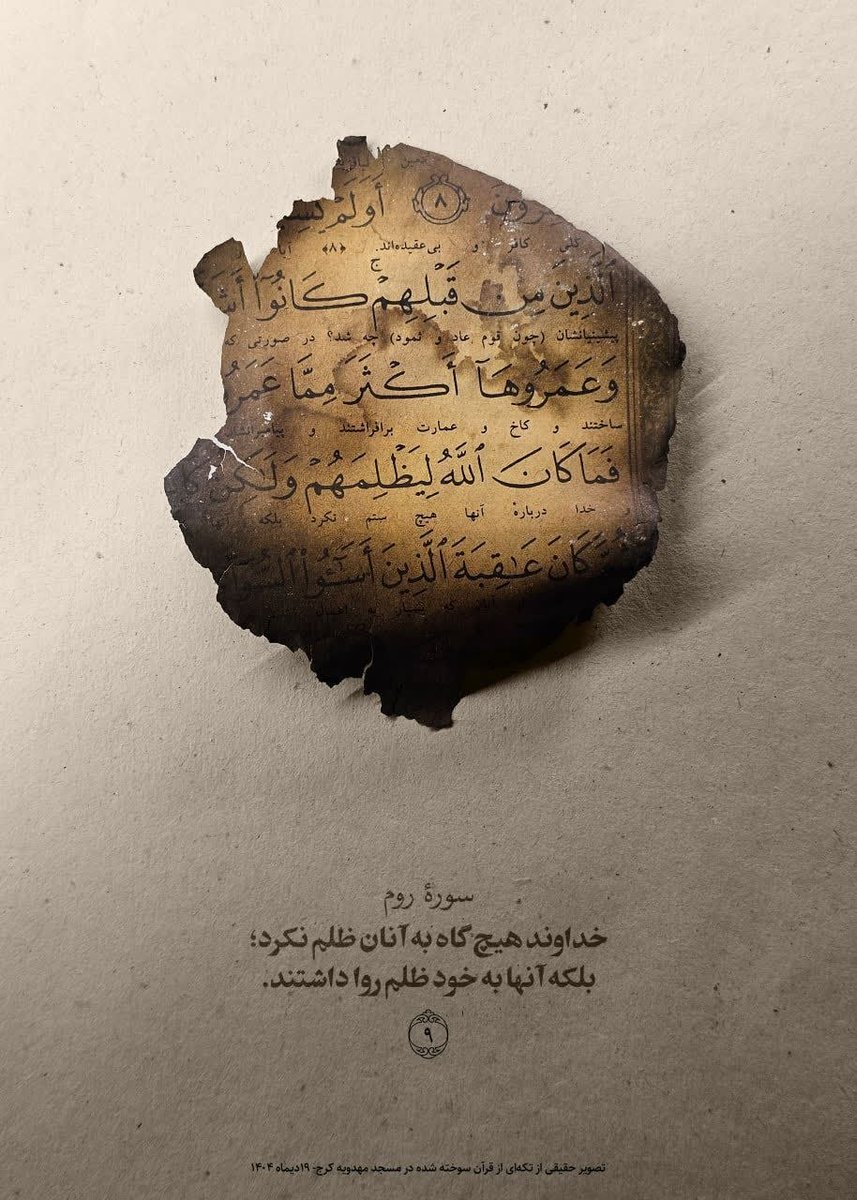 أَوَلَمْ ۸
کلی کافر و بی‌عقیده‌اند. ﴿۸﴾ آیا
ٱلَّذِينَ مِن قَبْلِهِمْ ۚ كَانُوٓا۟
پیشینیانشان (چون قوم عاد و ثمود) چه شد؟ در صورتی که
وَعَمَرُوهَآ أَكْثَرَ مِمَّا
ساختند و کاخ و عمارت برافراشتند و
فَمَا كَانَ ٱللَّهُ لِيَظْلِمَهُمْ وَلَـٰكِن
و خدا دربارهٔ آنها هیچ ستم نکرد بلکه آنها
كَانَ عَـٰقِبَةَ ٱلَّذِينَ أَسَـٰٓـُٔوا۟
سورهٔ روم
خداوند هیچ گاه به آنان ظلم نکرد؛
بلکه آنها به خود ظلم روا داشتند.
۹
تصویر حقیقی از تکه‌ای از قرآن سوخته شده در مسجد مهدویه کرج- ۱۹دیماه ۱۴۰۴